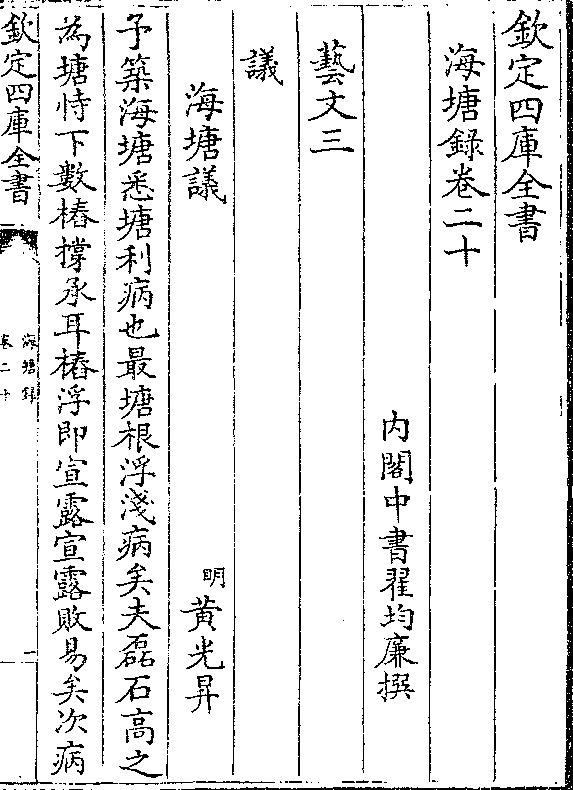 欽定四庫全書
海塘録卷二十
内閣中書翟均廉撰
藝文三
議
海塘議
明黄光昇
予築海塘悉塘利病也最塘根浮淺病矣夫磊石高之
為塘恃下數樁撑承耳樁浮即宣露宣露敗易矣次病
欽定四庫全書
海塘録
卷二十
一